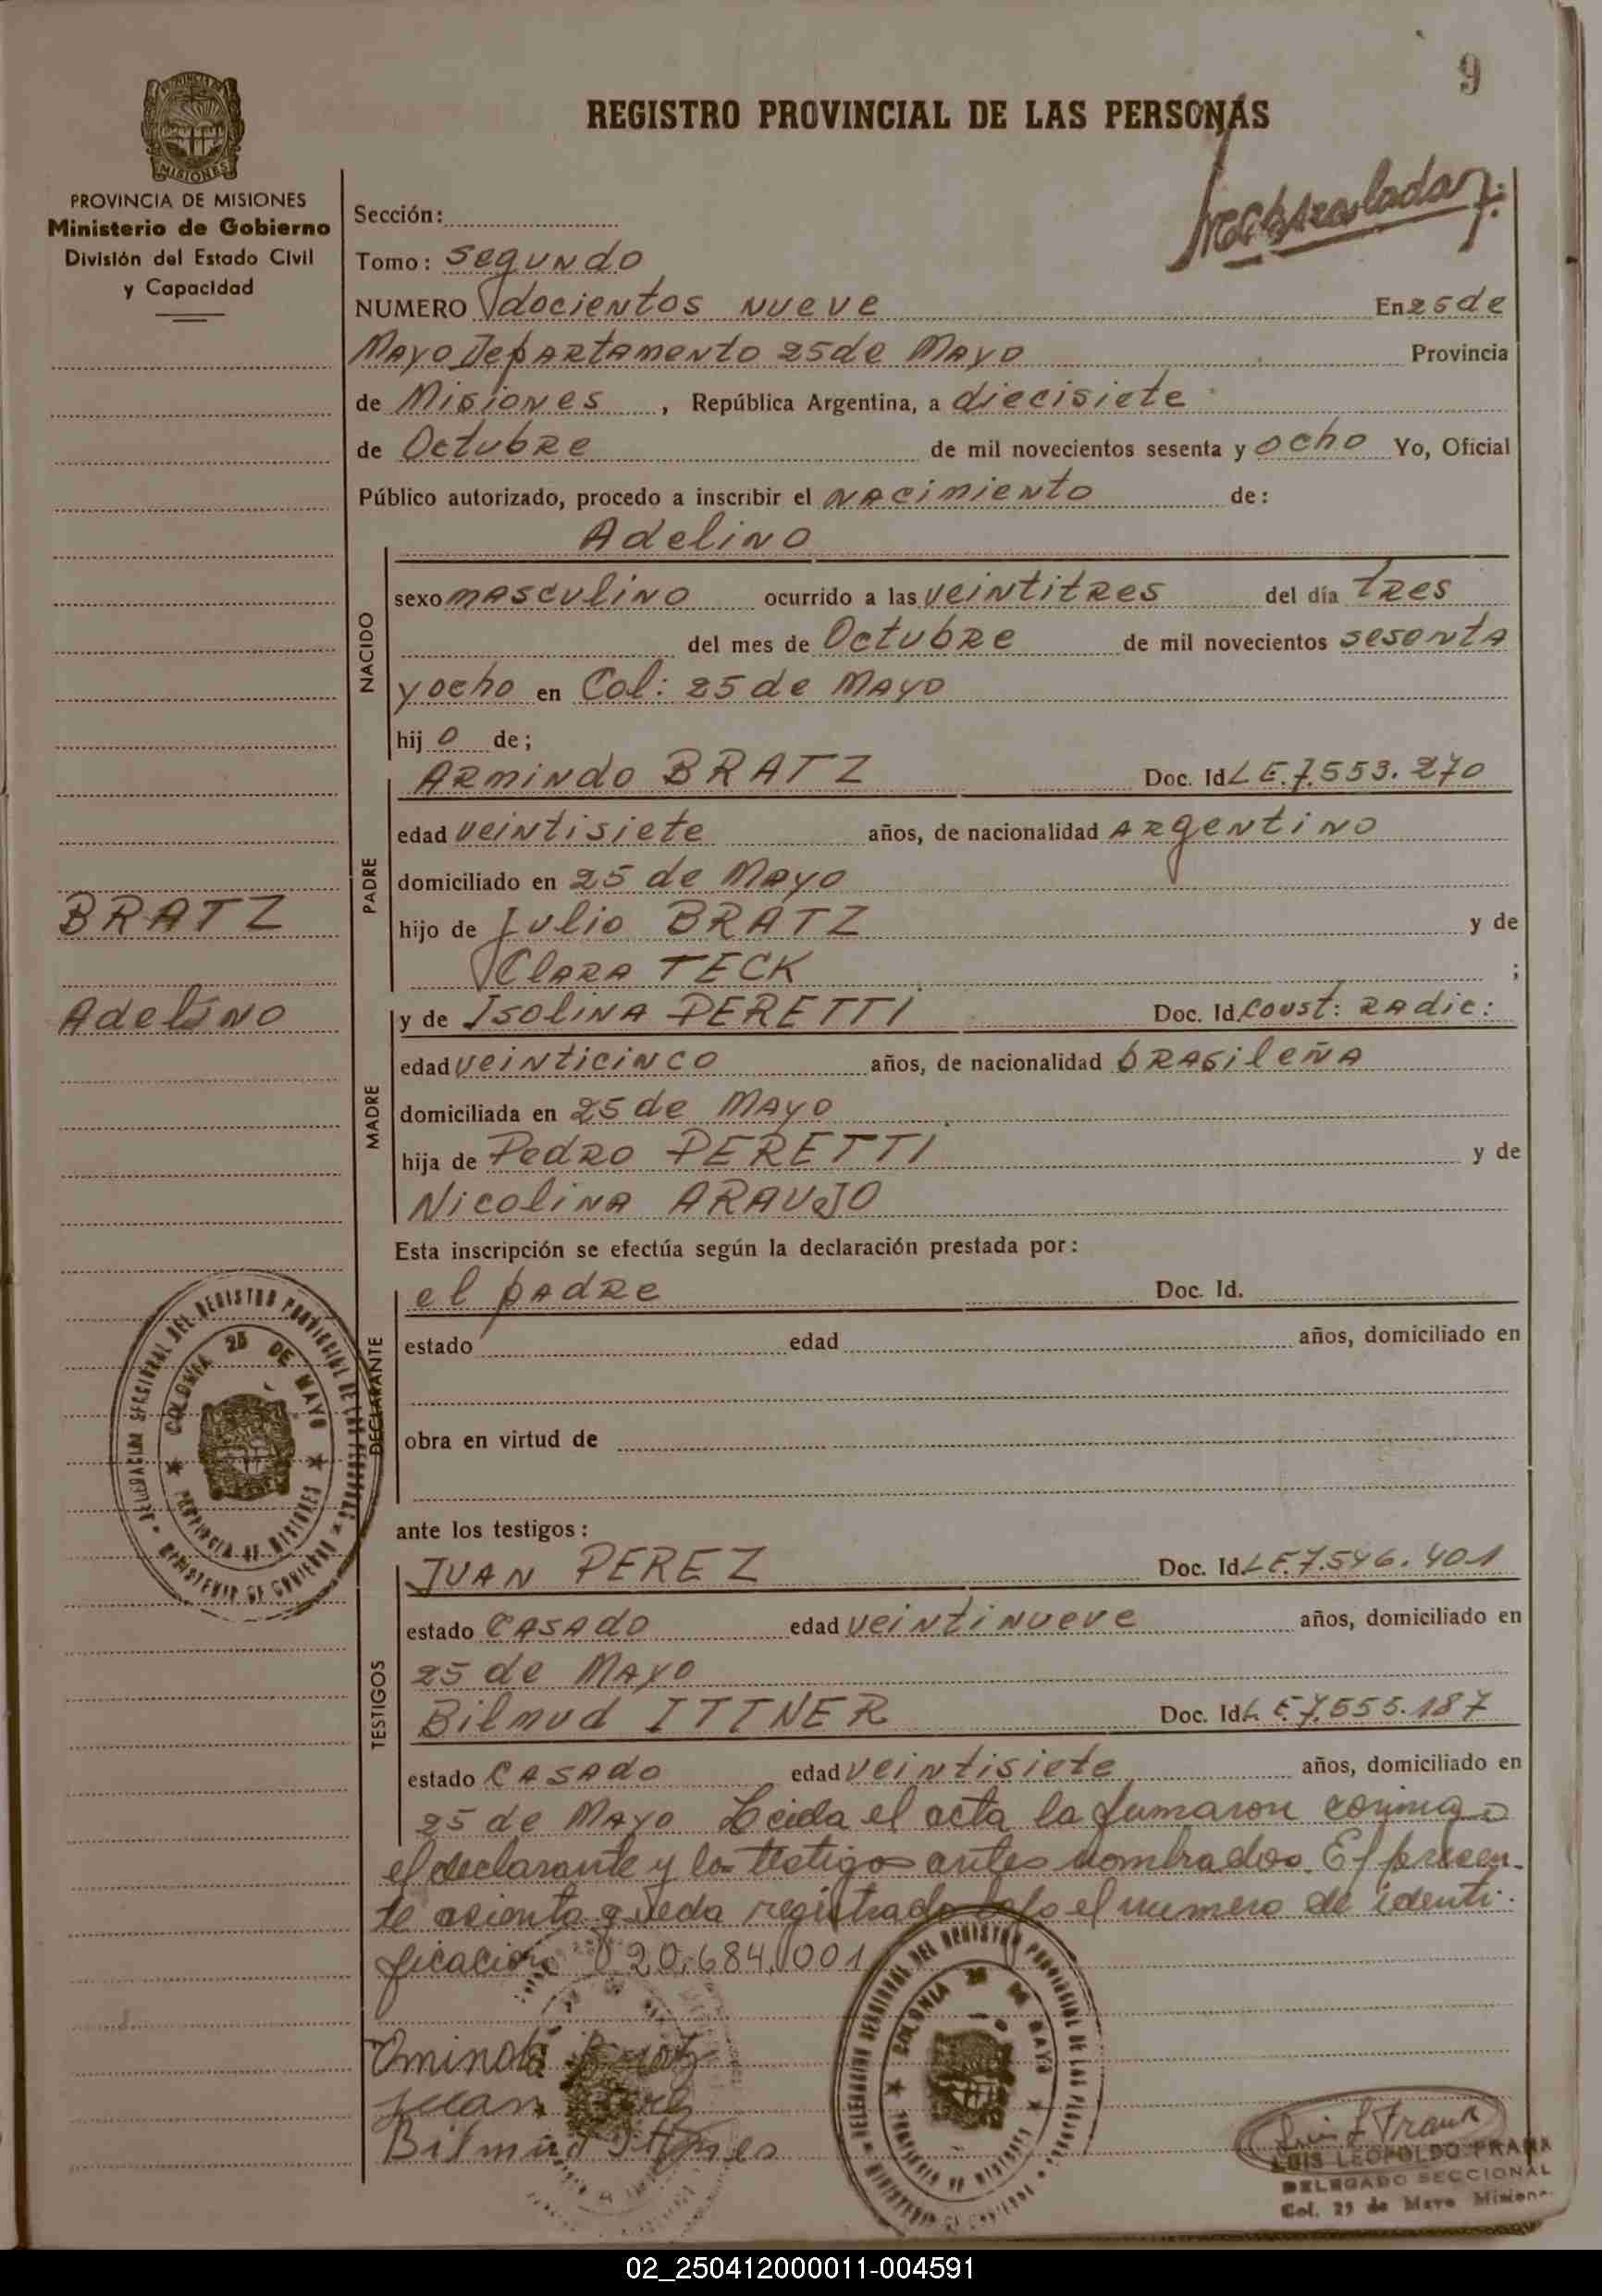 9
REGISTRO PROVINCIAL DE LAS PERSONAS
PROVINCIA DE MISIONES
MISIONES
PROVINCIA DE MISIONES
Ministerio de Gobierno
División del Estado Civil
y Capacidad
Sección:
Tomo: segundo
NUMERO docientos nueve En 25 de
Mayo Departamento 25 de Mayo Provincia
de Misiones, República Argentina, a diecisiete
de Octubre de mil novecientos sesenta y ocho Yo, Oficial
Público autorizado, procedo a inscribir el nacimiento de:
Adelino
NACIDO
sexo masculino ocurrido a las veintitres del día tres
del mes de Octubre de mil novecientos sesenta
y ocho en Col: 25 de Mayo
hijo de;
PADRE
Armindo BRATZ Doc. Id. L E. 7.553.270
edad veintisiete años, de nacionalidad Argentino
domiciliado en 25 de Mayo
BRATZ
hijo de Julio BRATZ y de
Clara TECK ;
Adelino
MADRE
y de Isolina PERETTI Doc. Id. Const: Radic:
edad veinticinco años, de nacionalidad brasileña
domiciliada en 25 de Mayo
hija de Pedro PERETTI y de
Nicolina ARAUJO
Esta inscripción se efectúa según la declaración prestada por:
DECLARANTE
el padre Doc. Id.
estado edad años, domiciliado en
obra en virtud de
DELEGACION SECCIONAL DEL REGISTRO PROVINCIAL DE LAS PERSONAS
COLONIA 25 DE MAYO
PROVINCIA DE MISIONES
MINISTERIO DE GOBIERNO
ante los testigos:
TESTIGOS
JUAN PEREZ Doc. Id. L E. 7.546.401
estado casado edad veintinueve años, domiciliado en
25 de Mayo
Bilmud ITTNER Doc. Id. L E. 7.555.187
estado casado edad veintisiete años, domiciliado en
25 de Mayo Leida el acta la firmaron conmigo
el declarante y los testigos antes nombrados. El presen-
te asiento queda registrado bajo el numero de identi-
ficacion 20.684.001
DELEGACION SECCIONAL DEL REGISTRO PROVINCIAL DE LAS PERSONAS
COLONIA 25 DE MAYO
PROVINCIA DE MISIONES
MINISTERIO DE GOBIERNO
Juan
Bilmud Ittner
Luis L Frank
LUIS LEOPOLDO FRANK
DELEGADO SECCIONAL
Col. 25 de Mayo Misiones
02_250412000011-004591